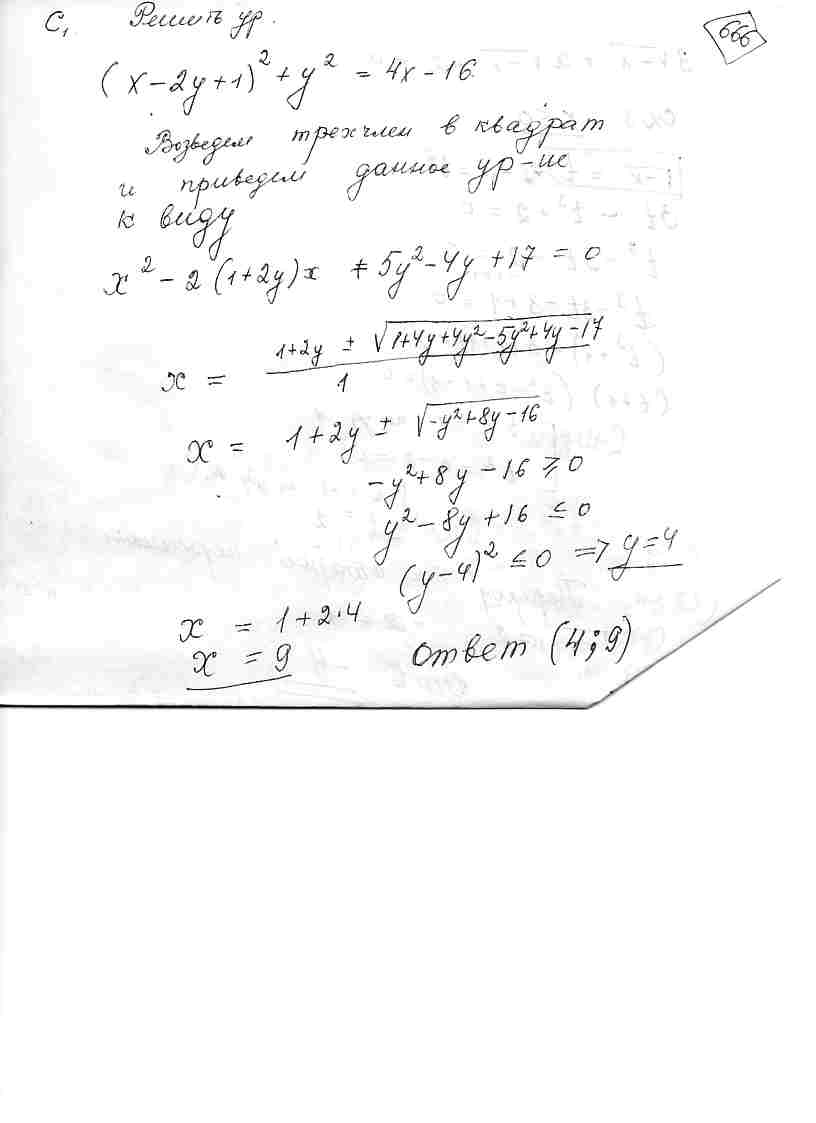 С₁ Решить ур.
666
(x-2y+1)² + y² = 4x-16
Возведем трехчлен в квадрат
и приведем данное ур-ие
к виду
x² - 2(1+2y)x + 5y² - 4y + 17 = 0
x = (1+2y ± √(1+4y+4y²-5y²+4y-17)) / 1
x = 1+2y ± √(-y²+8y-16)
-y²+8y-16 ≥ 0
y²-8y+16 ≤ 0
(y-4)² ≤ 0 => y=4
x = 1+2·4
x = 9 ответ (4;9)